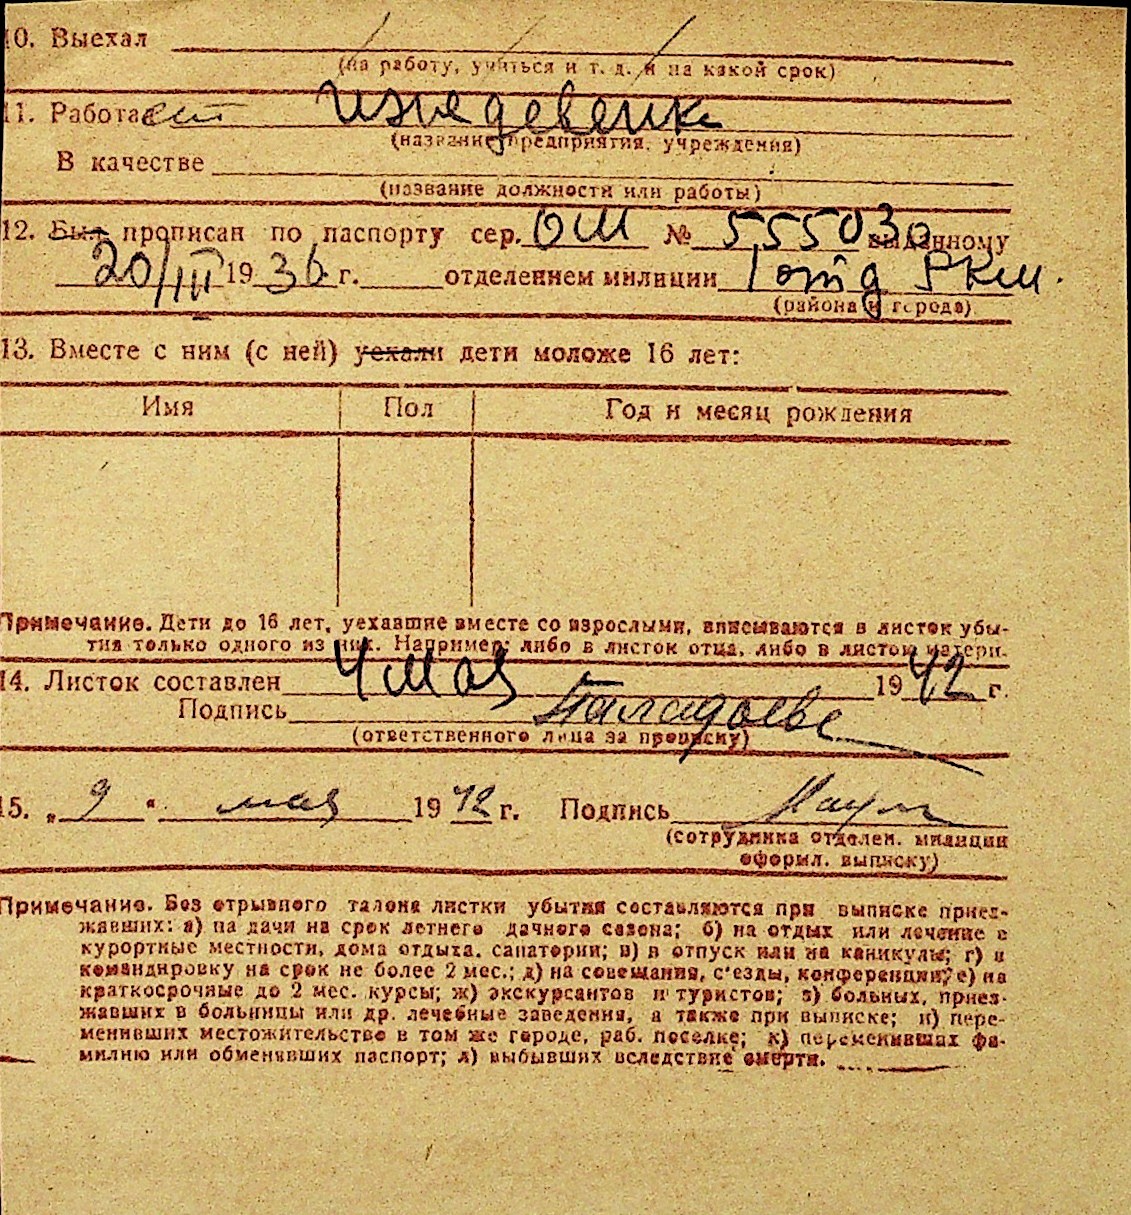 10. Выехал
(на работу, учиться и т. д. и на какой срок)
11. Работает иждевенк
(название предприятия, учреждения)
В качестве
(название должности или работы)
12. Был прописан по паспорту сер. ОШ № 555030 выданному
20/III 1936 г. отделением милиции 1 отд РКМ.
(района и города)
13. Вместе с ним (с ней) уехали дети моложе 16 лет:
Имя Пол Год и месяц рождения
Примечание. Дети до 16 лет, уехавшие вместе со взрослыми, вписываются в листок убы-
тия только одного из них. Например: либо в листок отца, либо в листок матери.
14. Листок составлен 4 мая 1942 г.
Подпись
(ответственного лица за прописку)
15. „9“ мая 1942 г. Подпись
(сотрудника отделен. милиции
оформл. выписку)
Примечание. Без отрывного талона листки убытия составляются при выписке приез-
жавших: а) на дачи на срок летнего дачного сезона; б) на отдых или лечение в
курортные местности, дома отдыха, санатории; в) в отпуск или на каникулы; г) в
командировку на срок не более 2 мес.; д) на совещания, с'езды, конференции; е) на
краткосрочные до 2 мес. курсы; ж) экскурсантов и туристов; з) больных, приез-
жавших в больницы или др. лечебные заведения, а также при выписке; и) пере-
менивших местожительство в том же городе, раб. поселке; к) переменивших фа-
милию или обменявших паспорт; л) выбывших вследствие смерти.